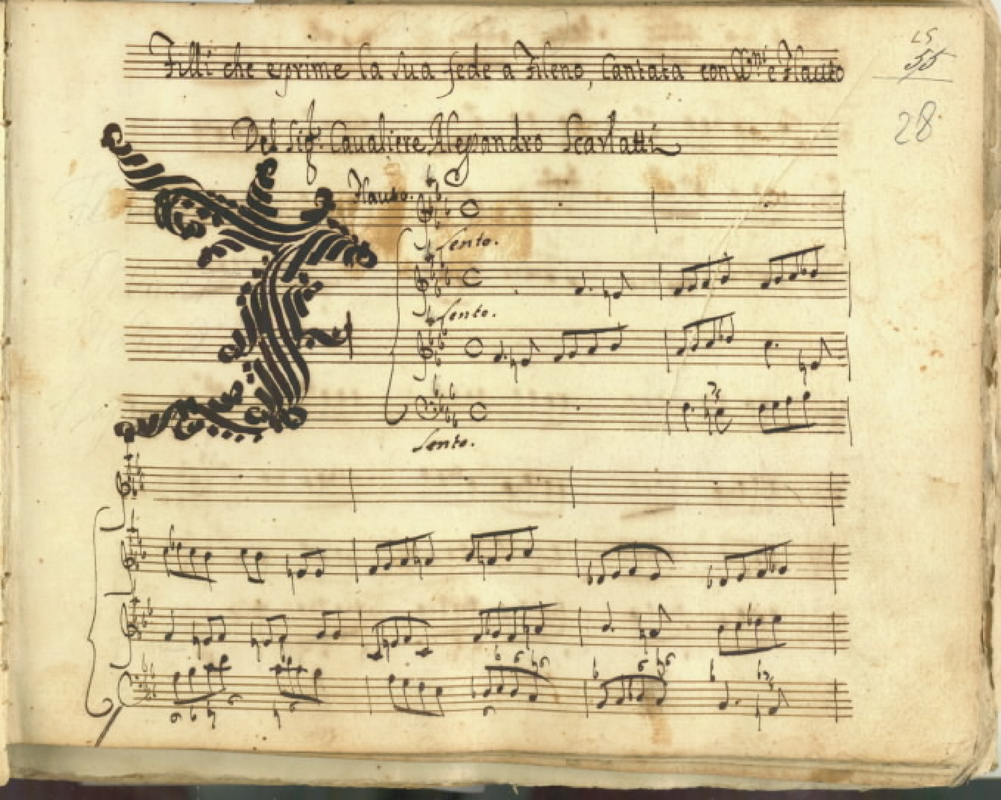 Filli che esprime la sua fede a Fileno, Cantata con VVni e Flauto
LS
55
28
Del Sigr. Cavaliere Alessandro Scarlatti
Flauto.
Lento.
Lento.
Lento.